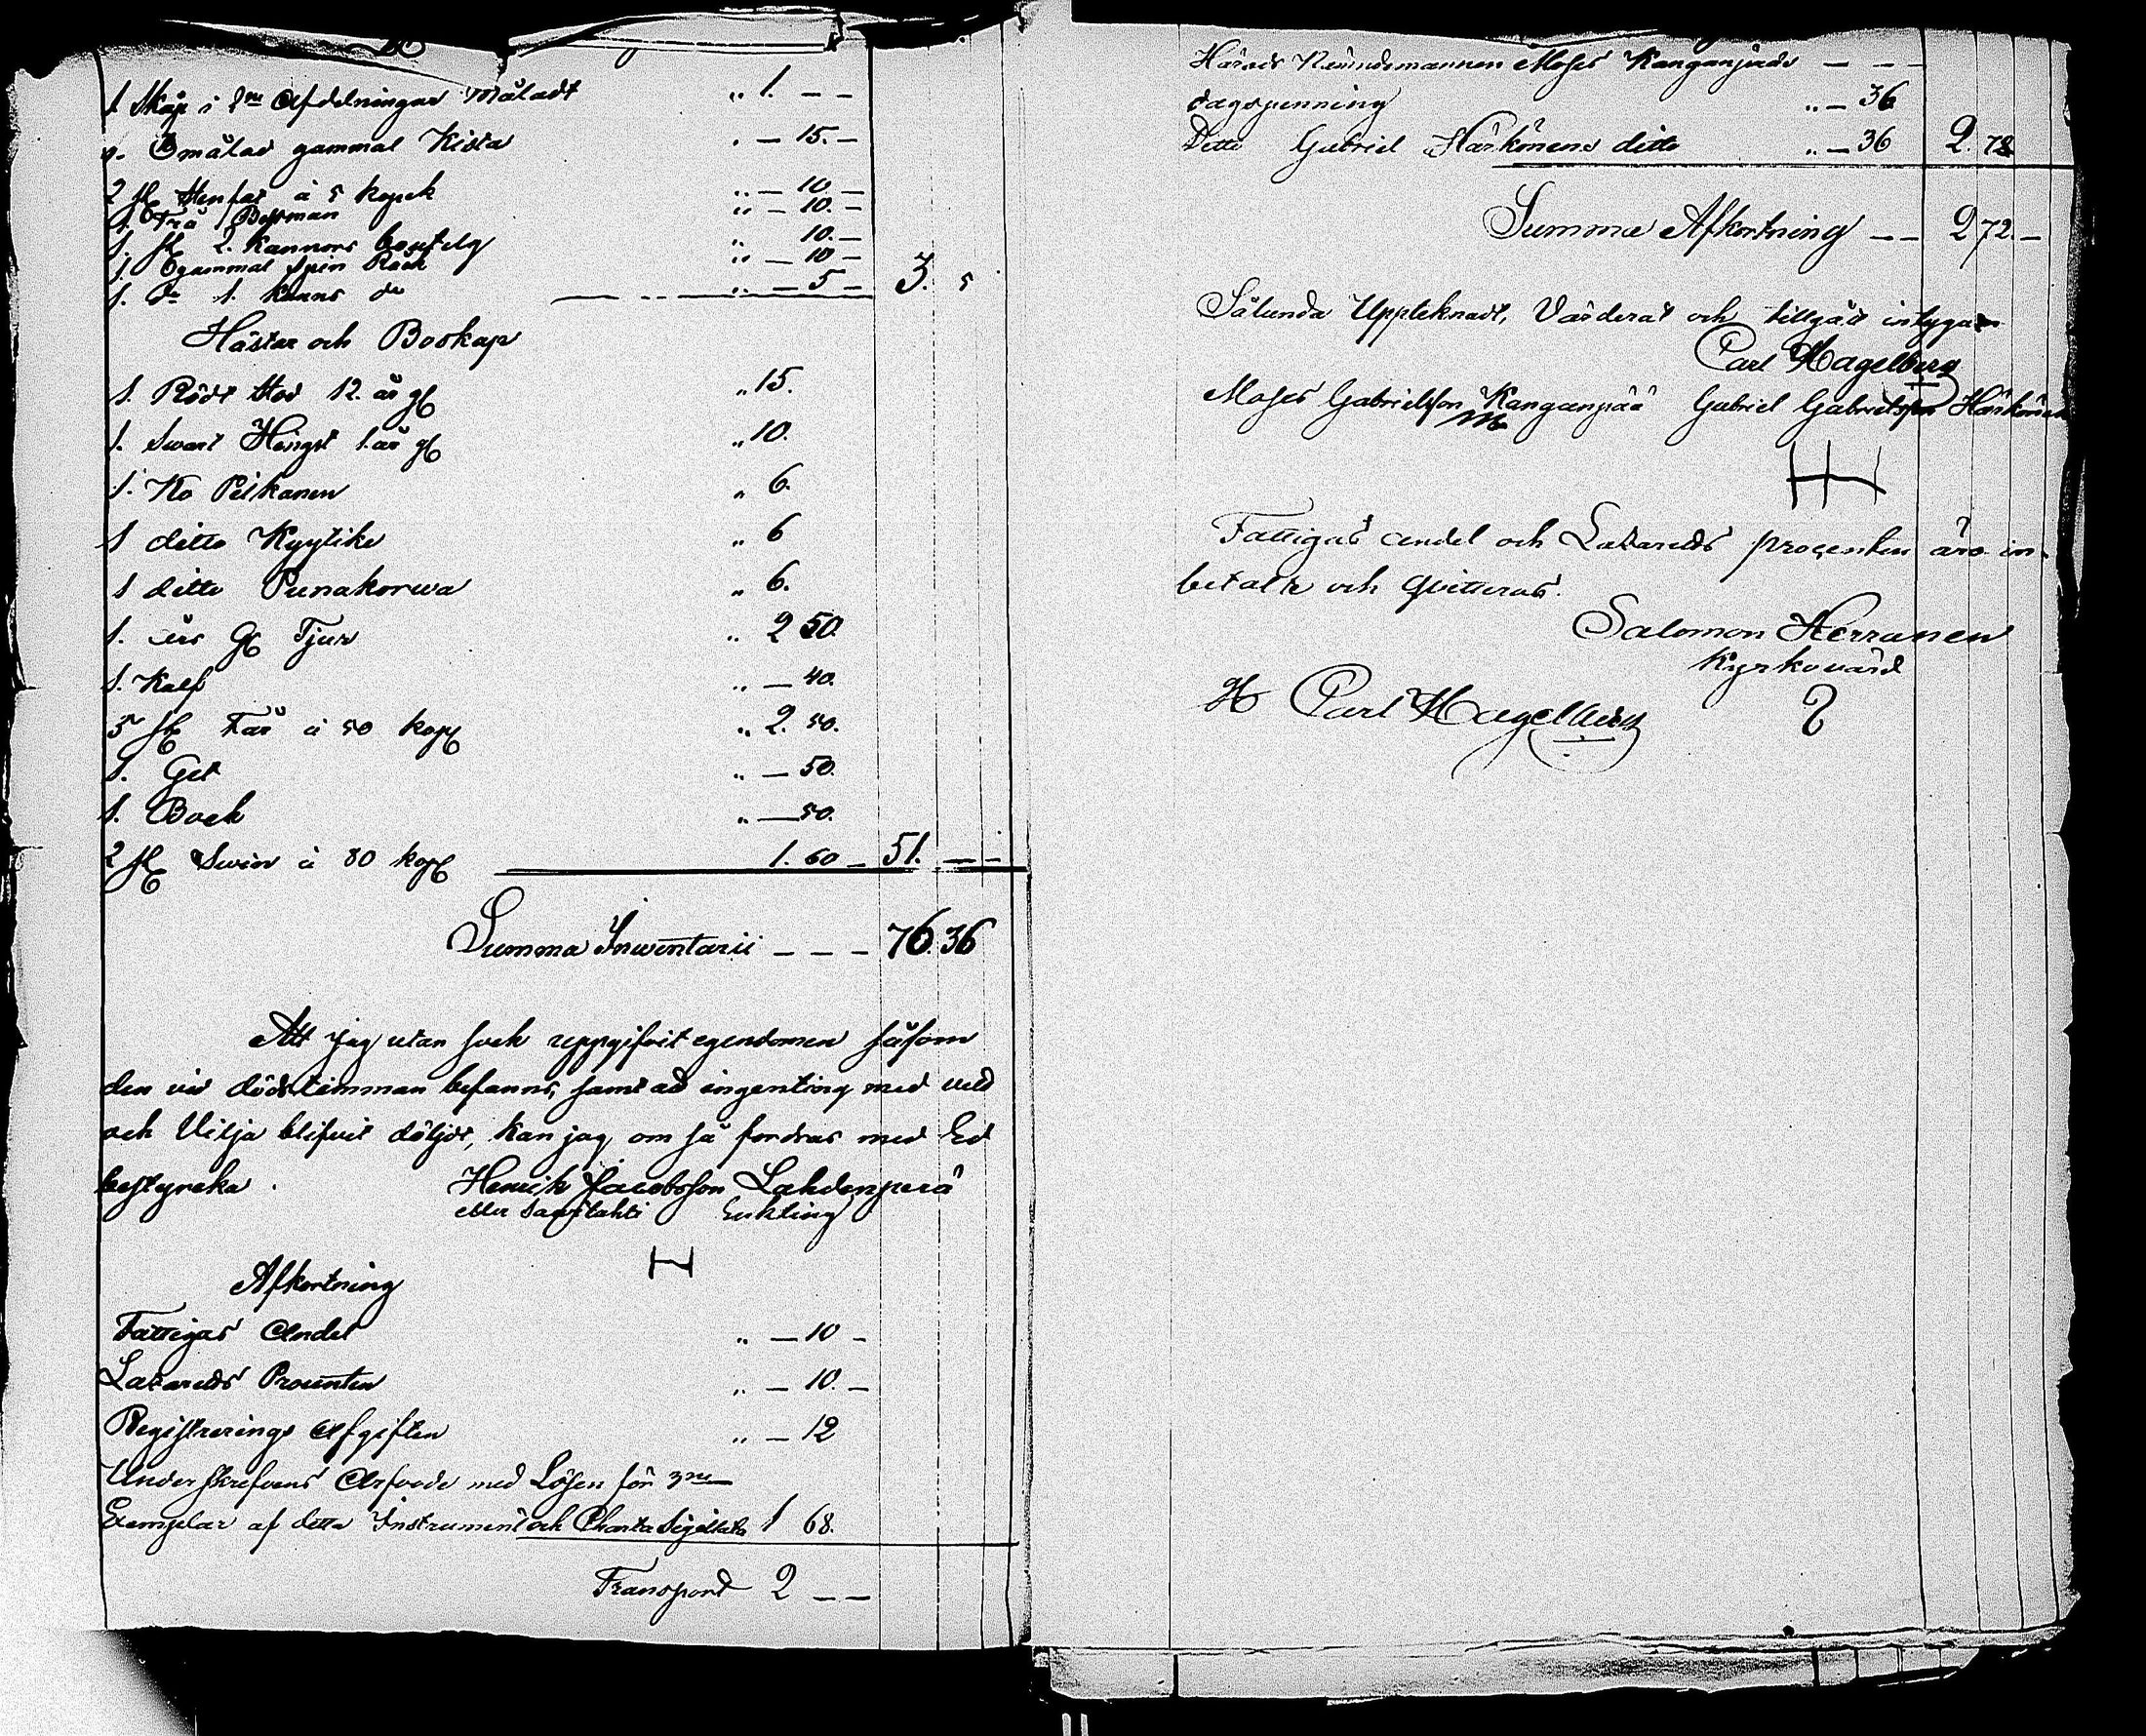 1 Skåp i 2ne Afdelningar Måladt " 1. — —
1. Omålad gammal Kista " — 15. —
2 st Stenfat à 5 kopek " — 10 —
1. Trä Bessman " — 10. —
1. st 2. Kannors " 10. —
1. gammal Spin Rock " — 10 —
1. do 1. Kanns do " — 5 — 3. 5
Hästar och Boskap
1. Rödt Stod 12. år gl " 15.
1. Swart Hingst 1. år gl " 10.
1. Ko Pilkanen " 6.
1 ditto Kyytike " 6
1 ditto Punakorwa " 6.
1. års gl Tjur " 2 50.
1. Kalf " — 40.
5 st Får à 50 kop " 2. 50.
1. Get " — 50.
1. Bock " — 50.
2 st Swin à 80 kop 1. 60 — 51. — —
Summa Inwentarii — — — 76. 36
Att jag utan svek uppgifvit egendomen såsom
den vid dödstimman befanns, samt att ingenting med vett
och Vilja blifvit döljdt, kan jag om så fordras med Ed
bestyrcka. Henrik Jacobsson Lahdenperä
eller
H
Afkortning
Fattigas Andel " — 10 —
Lazaretts Procenten " — 10. —
Registrerings Afgiften " — 12
Underskrefvens Arfvode med Lösen för 3ne
Exemplar af detta Instrument och Charta Sigillata 1 68.
Transport 2 — —
Härads Nämndemannen Moses Kanganpääs — — —
dagspenning " — 36
Ditto Gabriel Härkönens ditto " — 36 2. 72
Summa Afkortning — — 2 72. —
Sålunda Upptecknadt, Värderat och tillgått intygar
Carl Hagelberg
Moses Gabrielsson Kanganpää Gabriel Gabrielsson Härkönen
Fattigas andel och Lazaretts procenten äro in-
betalte och qvitteras.
Salomon Herranen
Kyrkovärd
Carl Hagelberg